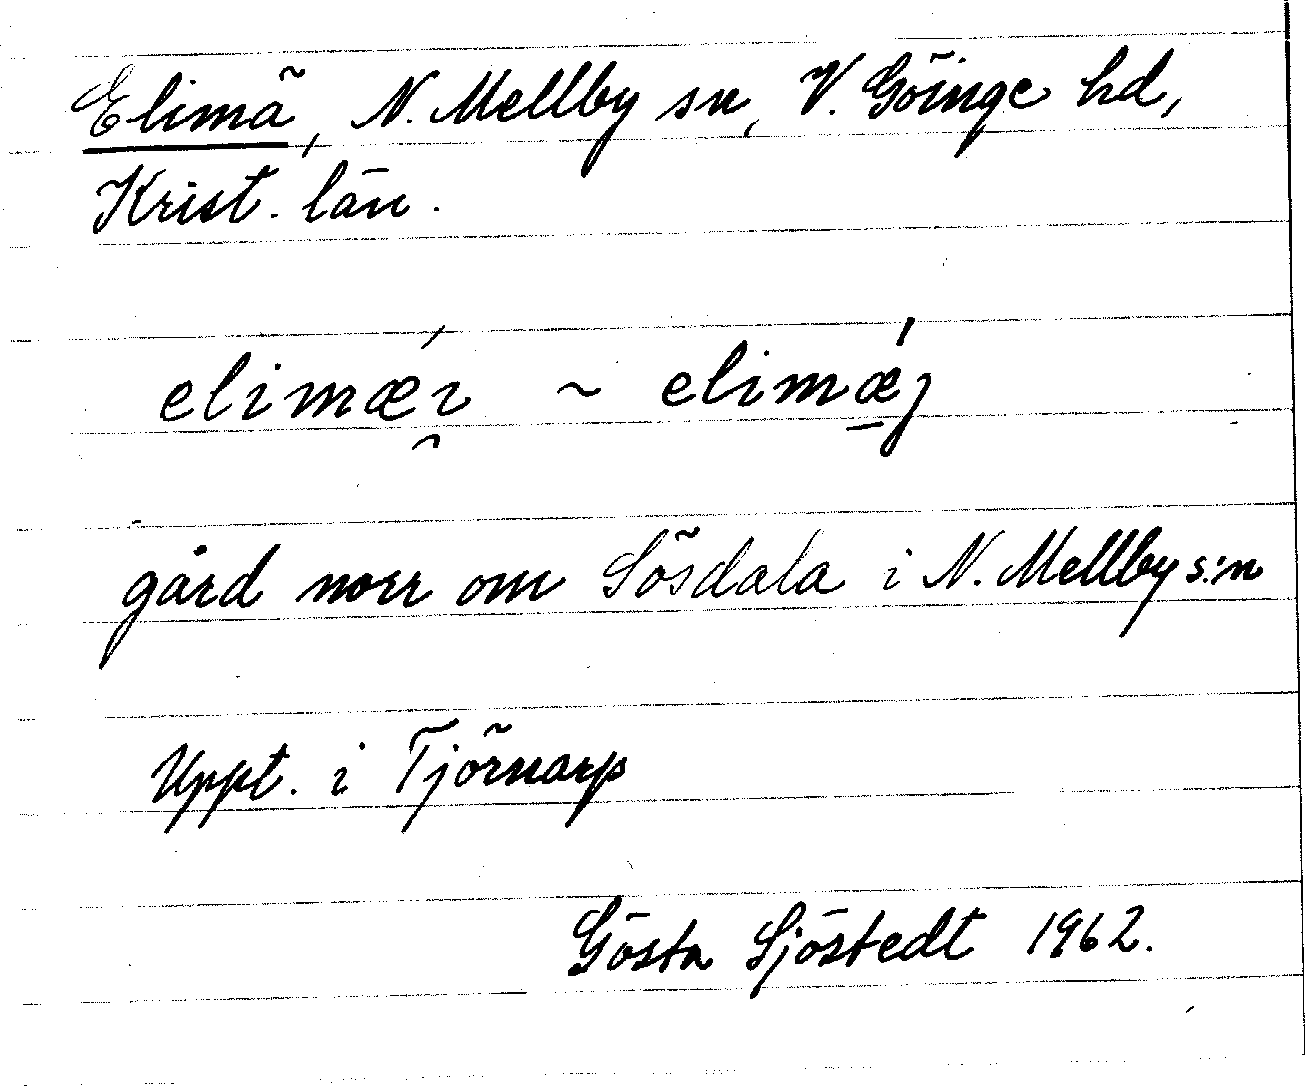 Elimä, N. Mellby sn, V. Göinge hd,
Krist. län.
elimǽi̯ ~ elimǽ̠j
gård norr om Sösdala i N. Mellby s:n
Uppt. i Tjörnarp
Gösta Sjöstedt 1962.